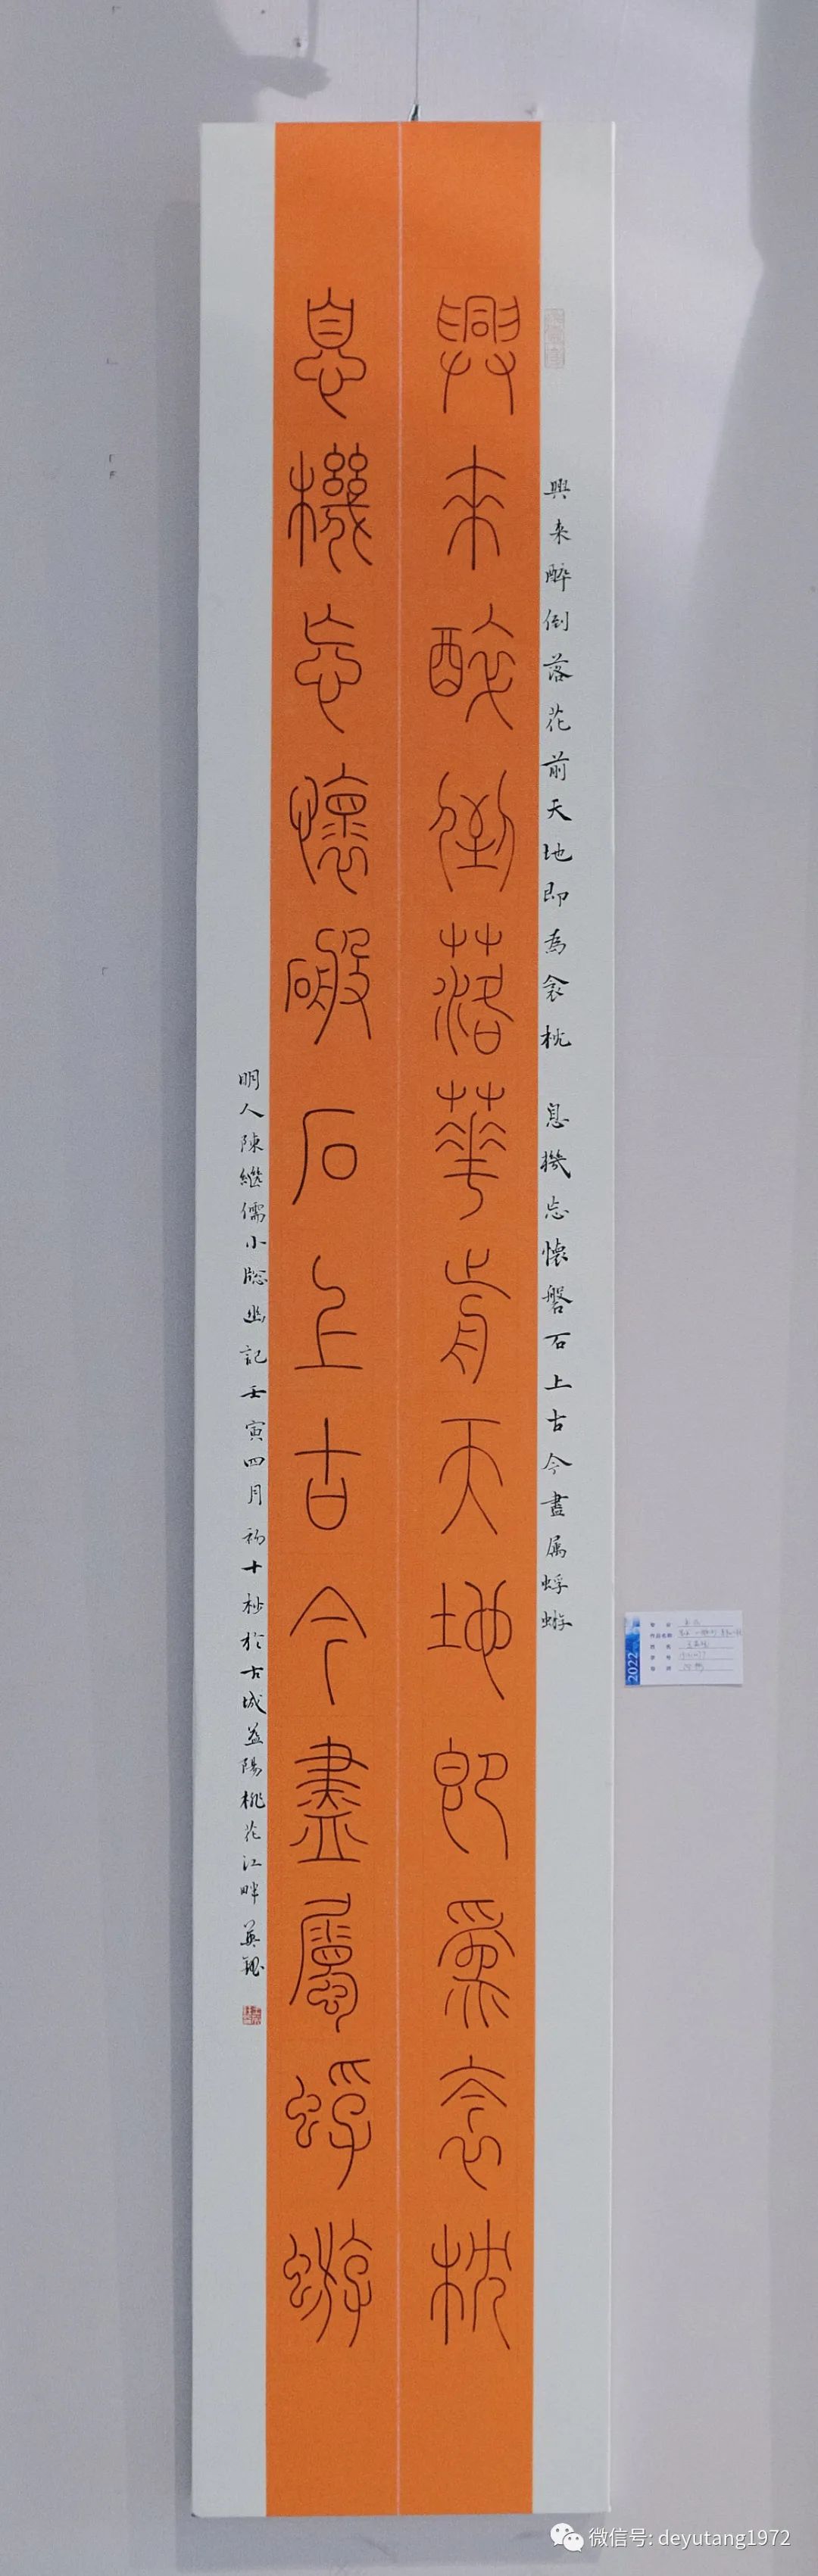 興來醉倒落華前天地即為衾枕
息機忘懷磐石上古今盡屬蜉蝣
興来醉倒落花前天地即為衾枕 息機忘懷磐石上古今盡属蜉蝣
明人陳繼儒小牕幽記壬寅四月初十秒於古城益陽桃花江畔英
2022
微信号: deyutang1972